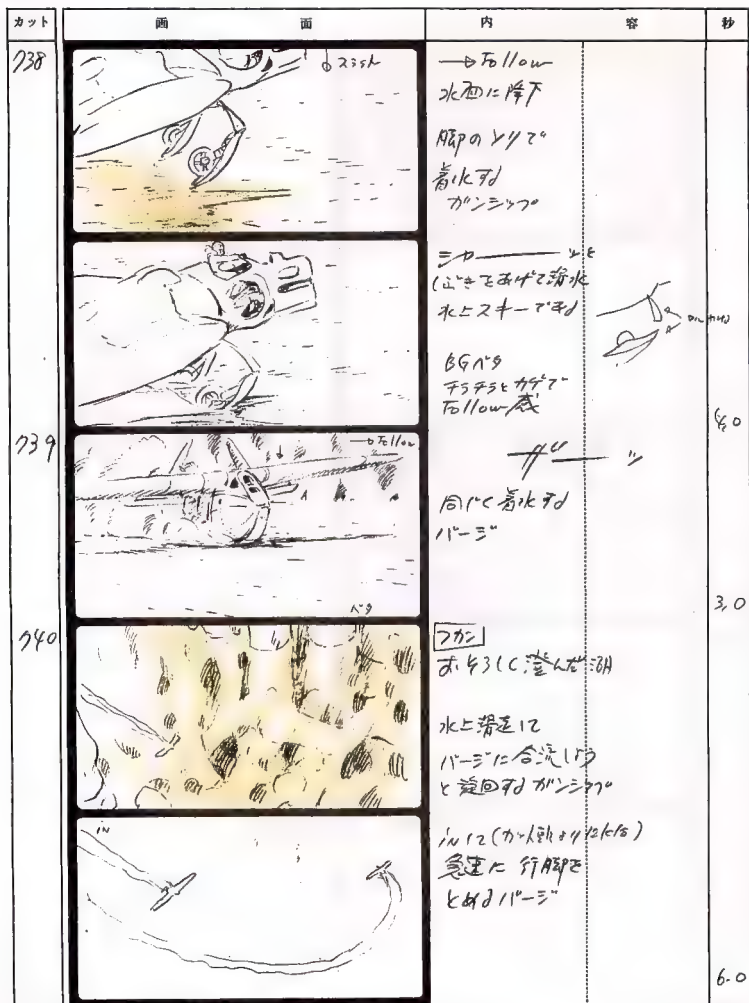 カット 画面 内容 秒
738
→ Follow
水面に降下
脚のソリで
着水する
ガンシップ
シャーーッと
しぶきをあげて着水
水上スキーである
BGベタ
チラチラとカゲで
Follow感
739
→ Follow
ザーッ
同じく着水する
バージ
ベタ
3.0
740
フカン
おそろしく澄んだ湖
水上滑走して
バージに合流しよう
と旋回するガンシップ
in
inして
急速に行脚を
とめるバージ
6.0